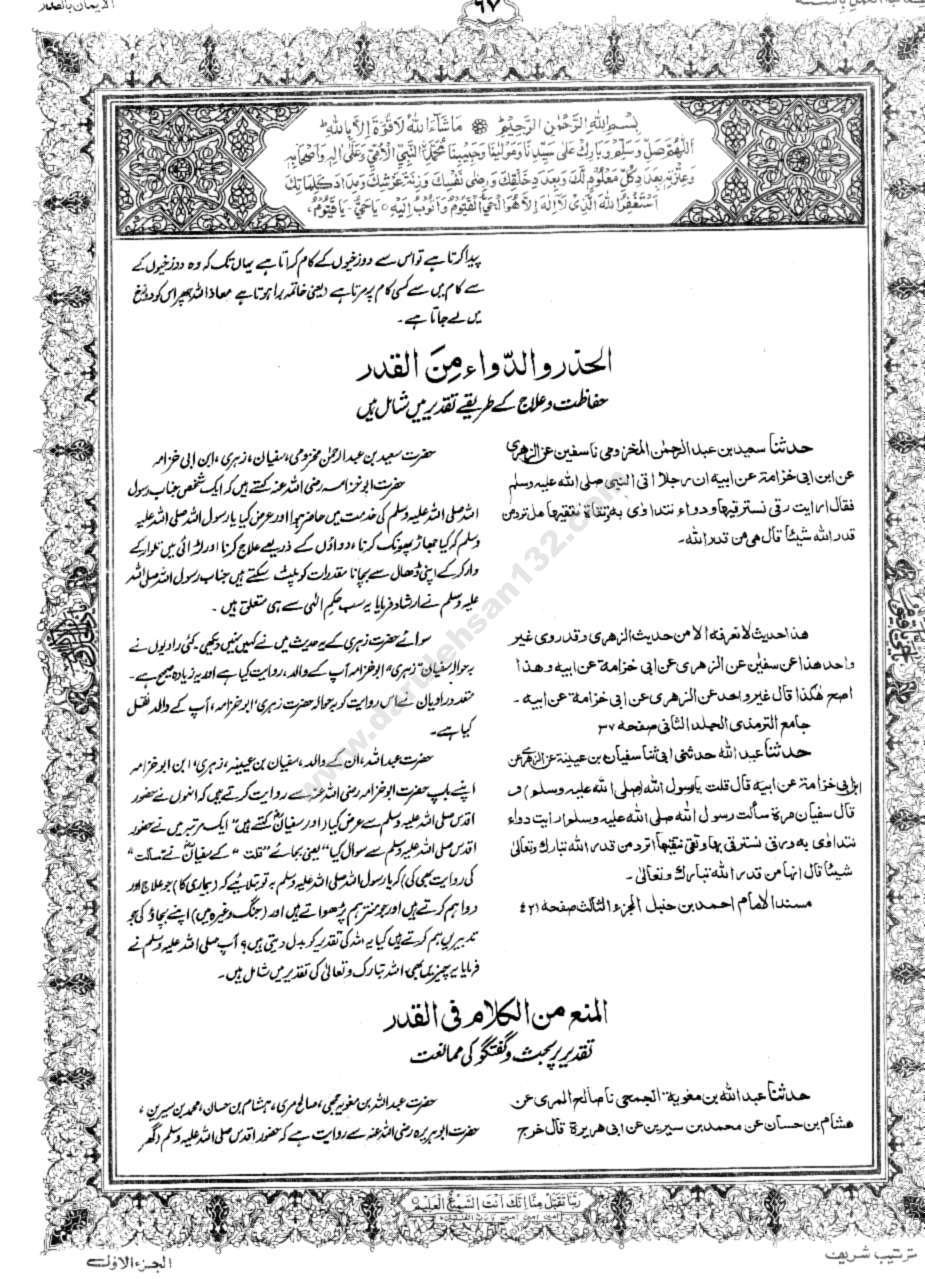 ٦٧
الايمان بالقدر
بِسْمِ اللهِ الرَّحْمٰنِ الرَّحِيْمِ ۞ مَا شَآءَ اللهُ لَا قُوَّةَ اِلَّا بِاللهِ
اَللّٰهُمَّ صَلِّ وَسَلِّمْ وَبَارِكْ عَلٰى سَيِّدِنَا وَمَوْلٰنَا وَحَبِيْبِنَا مُحَمَّدِ النَّبِيِّ الْاُمِّيِّ وَعَلٰى اٰلِهٖ وَاَصْحَابِهٖ
وَعِتْرَتِهٖ بِعَدَدِ كُلِّ مَعْلُوْمٍ لَّكَ وَبِعَدَدِ خَلْقِكَ وَرِضٰى نَفْسِكَ وَزِنَةَ عَرْشِكَ وَمِدَادَ كَلِمَاتِكَ
اَسْتَغْفِرُ اللهَ الَّذِىْ لَا اِلٰهَ اِلَّا هُوَ الْحَىُّ الْقَيُّوْمُ وَاَتُوْبُ اِلَيْهِ ٥ يَاحَىُّ۔ يَا قَيُّوْمُ
پیدا کرتا ہے تو اس سے دوزخیوں کے کام کراتا ہے یہاں تک کہ وہ دوزخیوں کے
سے کام میں سے کسی کام پر مرتا ہے (یعنی خاتمہ برا ہوتا ہے معاذ اللہ) پھر اس کو دوزخ
میں لے جاتا ہے۔
الحذر والدّواء مِنَ القدر
حفاظت وعلاج کے طریقے تقدیر میں شامل ہیں
حدثنا سعيد بن عبد الرحمٰن المخزومى نا سفين عن الزهرى
عن ابن ابى خزامة عن ابيه ان رجلا اتى النبى صلى الله عليه وسلم
فقال ارايت رقى نسترقيها ودواء نتداوى به وتقاة نتقيها هل ترد من
قدر الله شيئا قال هى من قدر الله۔
حضرت سعید بن عبد الرحمٰن مخزومی، سفیان، زہری، ابن ابی خزامہ
حضرت ابو خزامہ رضی اللہ عنہ کہتے ہیں کہ ایک شخص جناب رسول
اللہ صلی اللہ علیہ وسلم کی خدمت میں حاضر ہوا اور عرض کیا یا رسول اللہ صلی اللہ علیہ
وسلم کو کیا جھاڑ پھونک کرنا، دواؤں کے ذریعے علاج کرنا اور لڑائی میں تلوار کے
وار کر کے اپنی ڈھال سے بچانا مقدرات کو پلٹ سکتے ہیں جناب رسول اللہ صلی اللہ
علیہ وسلم نے ارشاد فرمایا یہ سب حکم الٰہی سے ہی متعلق ہیں ۔
هذا حديث لا نعرفه الا من حديث الزهرى وقد روى غير
واحد هذا عن سفين عن الزهرى عن ابى خزامة عن ابيه و هذا
اصح هٰكذا قال غير واحد عن الزهرى عن ابى خزامة عن ابيه ۔
جامع الترمذى الجلد الثانى صفحه ٣٧
سوائے حضرت زہری کے یہ حدیث میں نے کہیں نہیں دیکھی۔ کئی راویوں نے
بہ حوالہ سفیان "زہری" ابو خزامہ آپ کے والد، روایت کیا ہے اور یہ زیادہ صحیح ہے۔
متعدد راویان نے اس روایت کو بہ حوالہ حضرت زہری "ابو خزامہ، آپ کے والد نقل
کیا ہے۔
حدثنا عبد الله حدثنى ابى ثنا سفيان بن عيينة عن الزهرى عن
ابن ابى خزامة عن ابيه قال قلت يا رسول الله (صلى الله عليه وسلم) و
قال سفيان مرة سألت رسول الله صلى الله عليه وسلم ارايت دواء
نتداوى به ورقى نسترقى بها وتقى نتقيها اترد من قدر الله تبارك وتعالى
شيئا قال انها من قدر الله تبارك وتعالى۔
مسند الامام احمد بن حنبل الجزء الثالث صفحه ٤٢١
حضرت عبد اللہ، ان کے والد، سفیان بن عیینہ، زہری، ابن ابو خزامہ
اپنے باپ حضرت ابو خزامہ رضی اللہ عنہ سے روایت کرتے ہیں کہ انہوں نے حضور
اقدس صلی اللہ علیہ وسلم سے عرض کیا (اور سفیانؒ کہتے ہیں "ایک مرتبہ میں نے حضور
اقدس صلی اللہ علیہ وسلم سے سوال کیا" یعنی بجائے "قلت" کے سفیانؒ نے "سالت"
کی روایت بھی کی) کہ یا رسول اللہ صلی اللہ علیہ وسلم یہ تو بتلائیے کہ (بیماری کا) جو علاج اور
دوا ہم کرتے ہیں اور جو منتر ہم پڑھواتے ہیں اور (جنگ وغیرہ میں) اپنے بچاؤ کی جو
تدبیریں ہم کرتے ہیں کیا یہ اللہ کی تقدیر کو بدل دیتی ہیں؟ آپ صلی اللہ علیہ وسلم نے
فرمایا یہ چیزیں بھی اللہ تبارک وتعالیٰ کی تقدیر میں شامل ہیں۔
المنع من الكلام فى القدر
تقدیر پر بحث و گفتگو کی ممانعت
حدثنا عبد الله بن معٰوية الجمحى نا صالح المرى عن
هشام بن حسان عن محمد بن سيرين عن ابى هريرة قال خرج
حضرت عبد اللہ بن معٰویہ جمحی، صالح مری، ہشام بن حسان، محمد بن سیرین،
حضرت ابو ہریرہ رضی اللہ عنہ سے روایت ہے کہ حضور اقدس صلی اللہ علیہ وسلم (گھر
رَبَّنَا تَقَبَّلْ مِنَّا اِنَّكَ اَنْتَ السَّمِيْعُ الْعَلِيْمُ
ترتيب شريف
الجزء الاول
www.daralehsan132.com